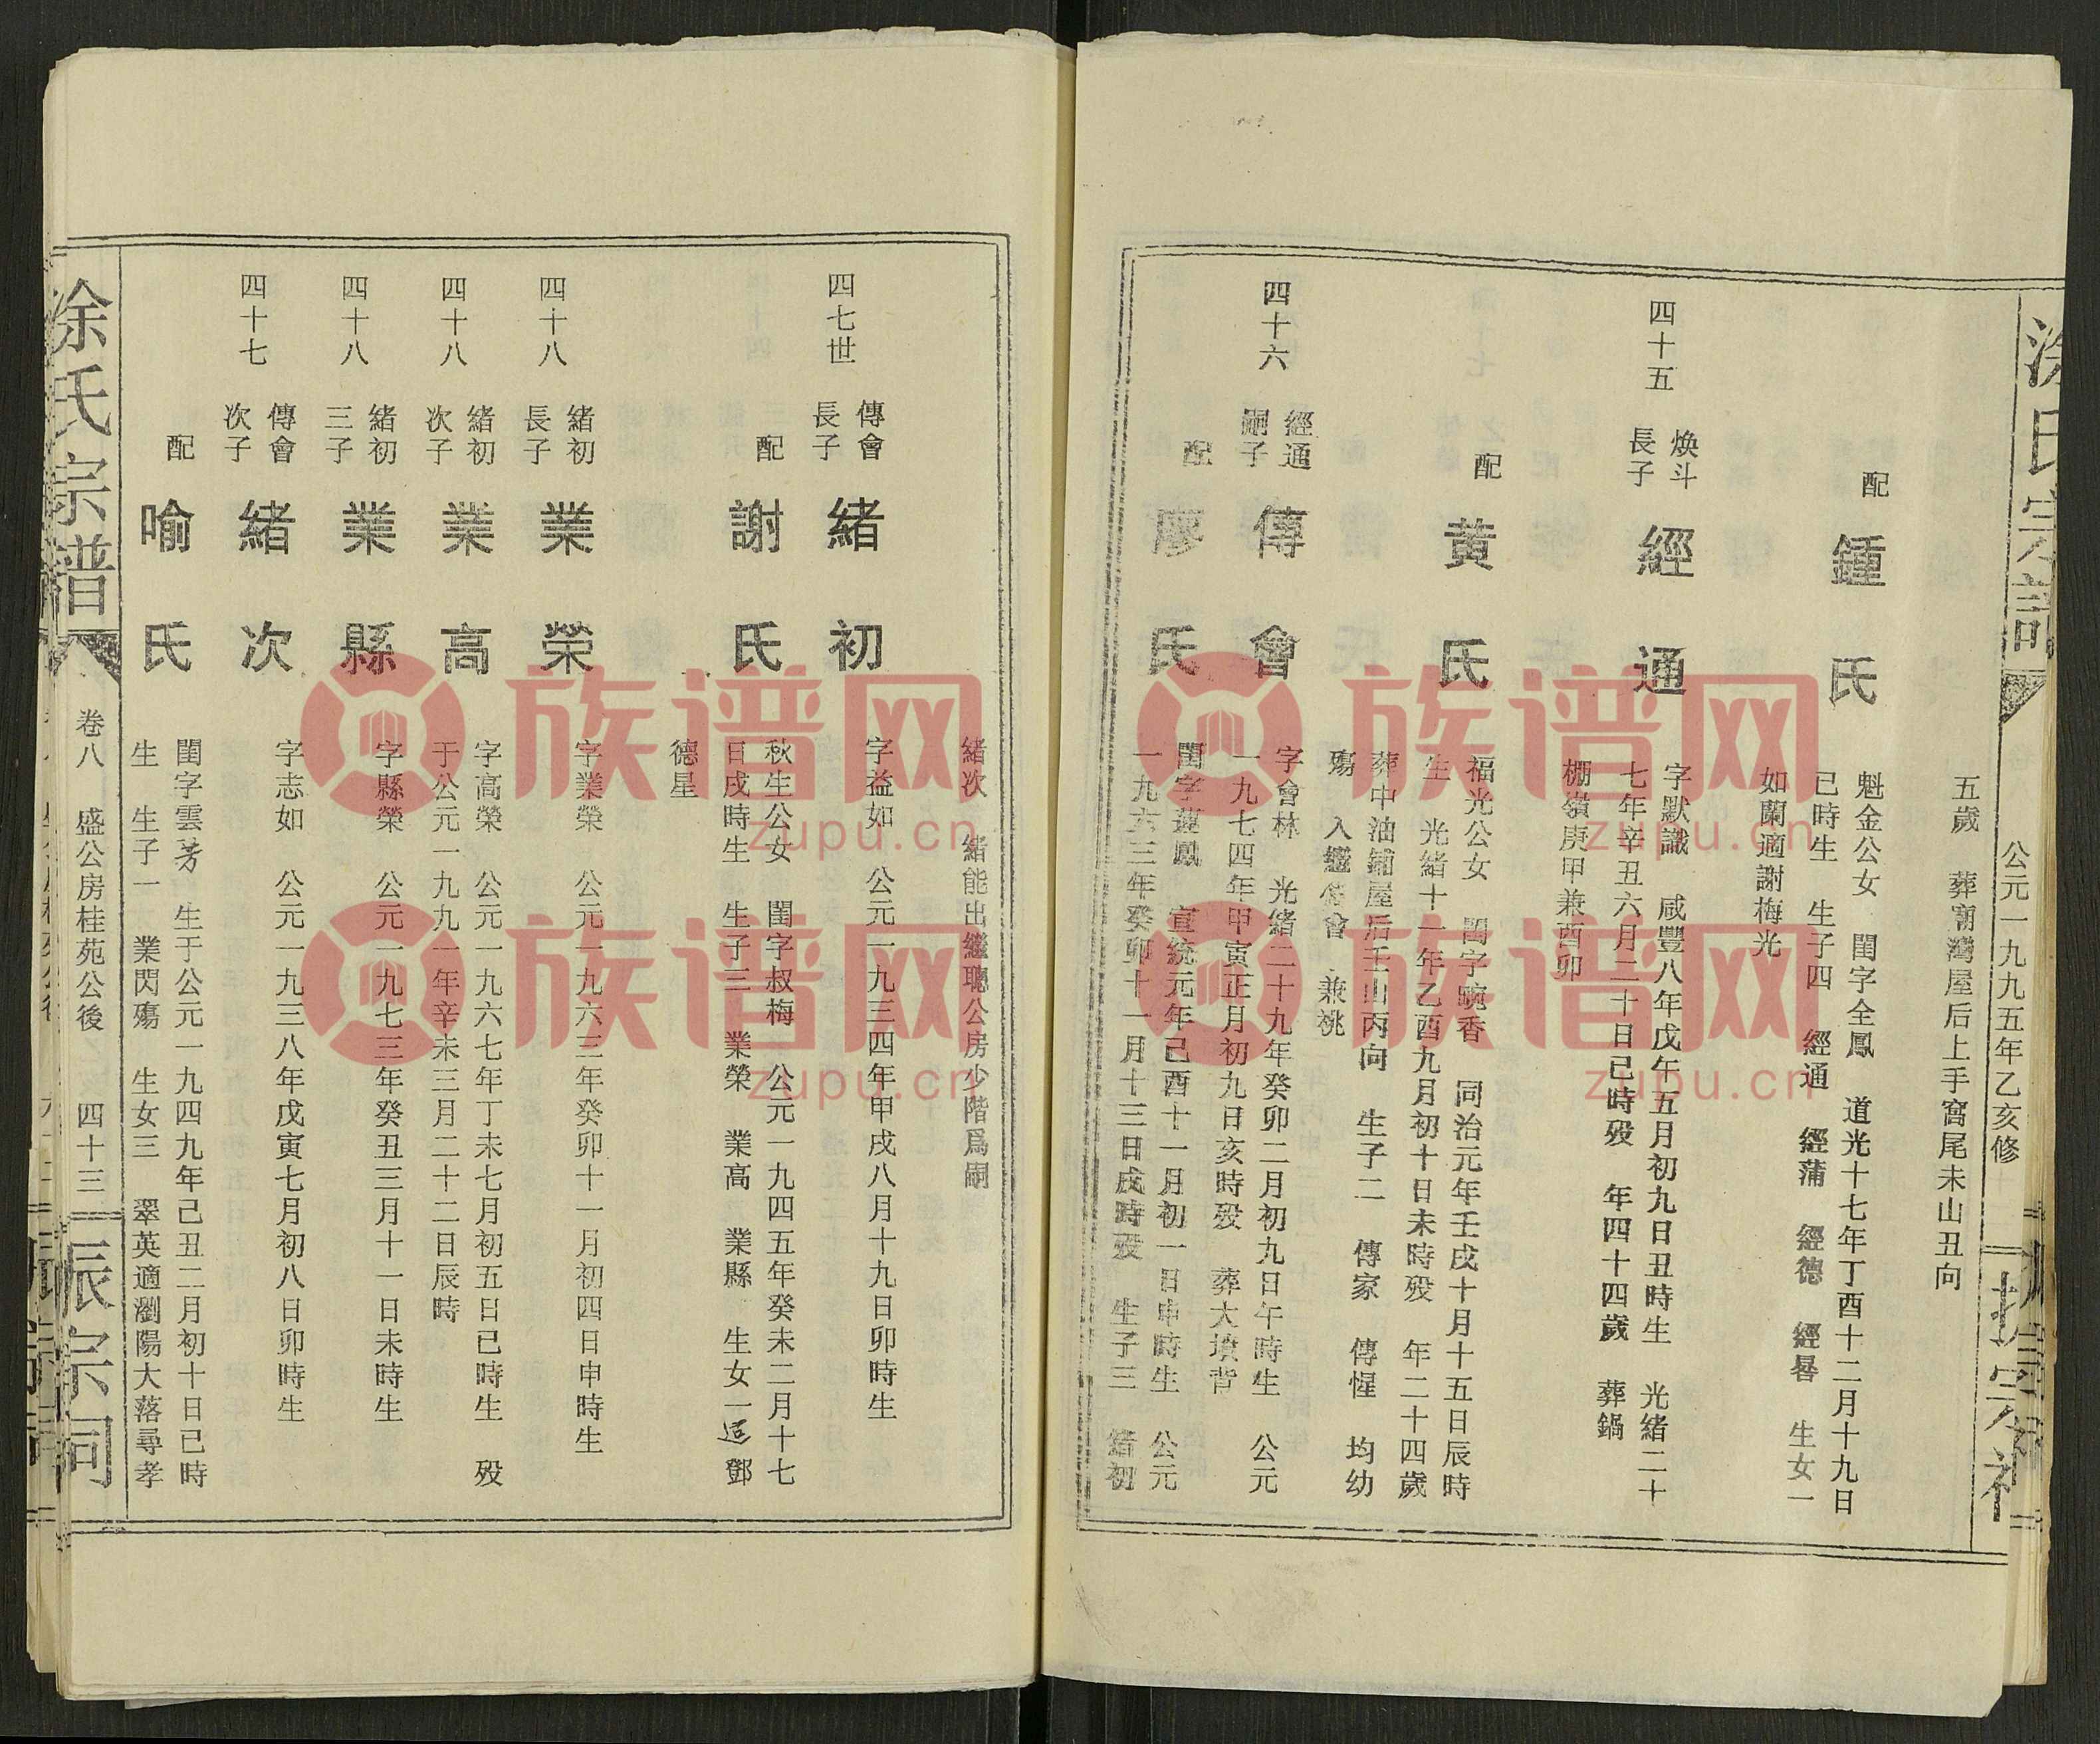 公元一九九五年乙亥修
五歲 葬南灣屋后上手窩尾未山丑向
配
鍾氏
魁金公女 閨字全鳳 道光十七年丁酉十二月十九日
巳時生 生子四 經通 經蒲 經德 經晷 生女一
如蘭適謝梅光
四十五
煥斗
長子
經通
字默識 咸豐八年戊午五月初九日丑時生 光緒二十
七年辛丑六月二十日巳時歿 年四十四歲 葬鍋
棚嶺庚甲兼酉卯
配
黄氏
福光公女 閨字畹香 同治元年壬戌十月十五日辰時
生 光緒十一年乙酉九月初十日未時歿 年二十四歲
葬中油鋪屋后壬山丙向 生子二 傳家 傳惺 均幼
殤 入繼傳會 兼祧
四十六
經通
嗣子
傳會
字會林 光緒二十九年癸卯二月初九日午時生 公元
一九七四年甲寅正月初九日亥時歿 葬大墳背
配
廖氏
閨字蓮鳳 宣統元年己酉十一月初一日申時生 公元
一九六三年癸卯十一月十三日戌時歿 生子三 緒初
緒次 緒能出繼聰公房少階爲嗣
四七世
傳會
長子
緒初
字益如 公元一九三四年甲戌八月十九日卯時生
配
謝氏
秋生公女 閨字叔梅 公元一九四五年癸未二月十七
日戌時生 生子三 業榮 業高 業縣 生女一适鄧
德星
四十八
緒初
長子
業榮
字業榮 公元一九六三年癸卯十一月初四日申時生
四十八
緒初
次子
業高
字高榮 公元一九六七年丁未七月初五日巳時生 歿
于公元一九九一年辛未三月二十二日辰時
四十八
緒初
三子
業縣
字縣榮 公元一九七三年癸丑三月十一日未時生
四十七
傳會
次子
緒次
字志如 公元一九三八年戊寅七月初八日卯時生
配
喻氏
閨字雲芳 生于公元一九四九年己丑二月初十日巳時
生 生子一 業閃殤 生女三 翠英適瀏陽大落尋孝
涂氏宗譜
卷八 盛公房桂苑公後 四十三
振宗祠
族谱网
zupu.cn
族谱网
zupu.cn
族谱网
zupu.cn
族谱网
zupu.cn